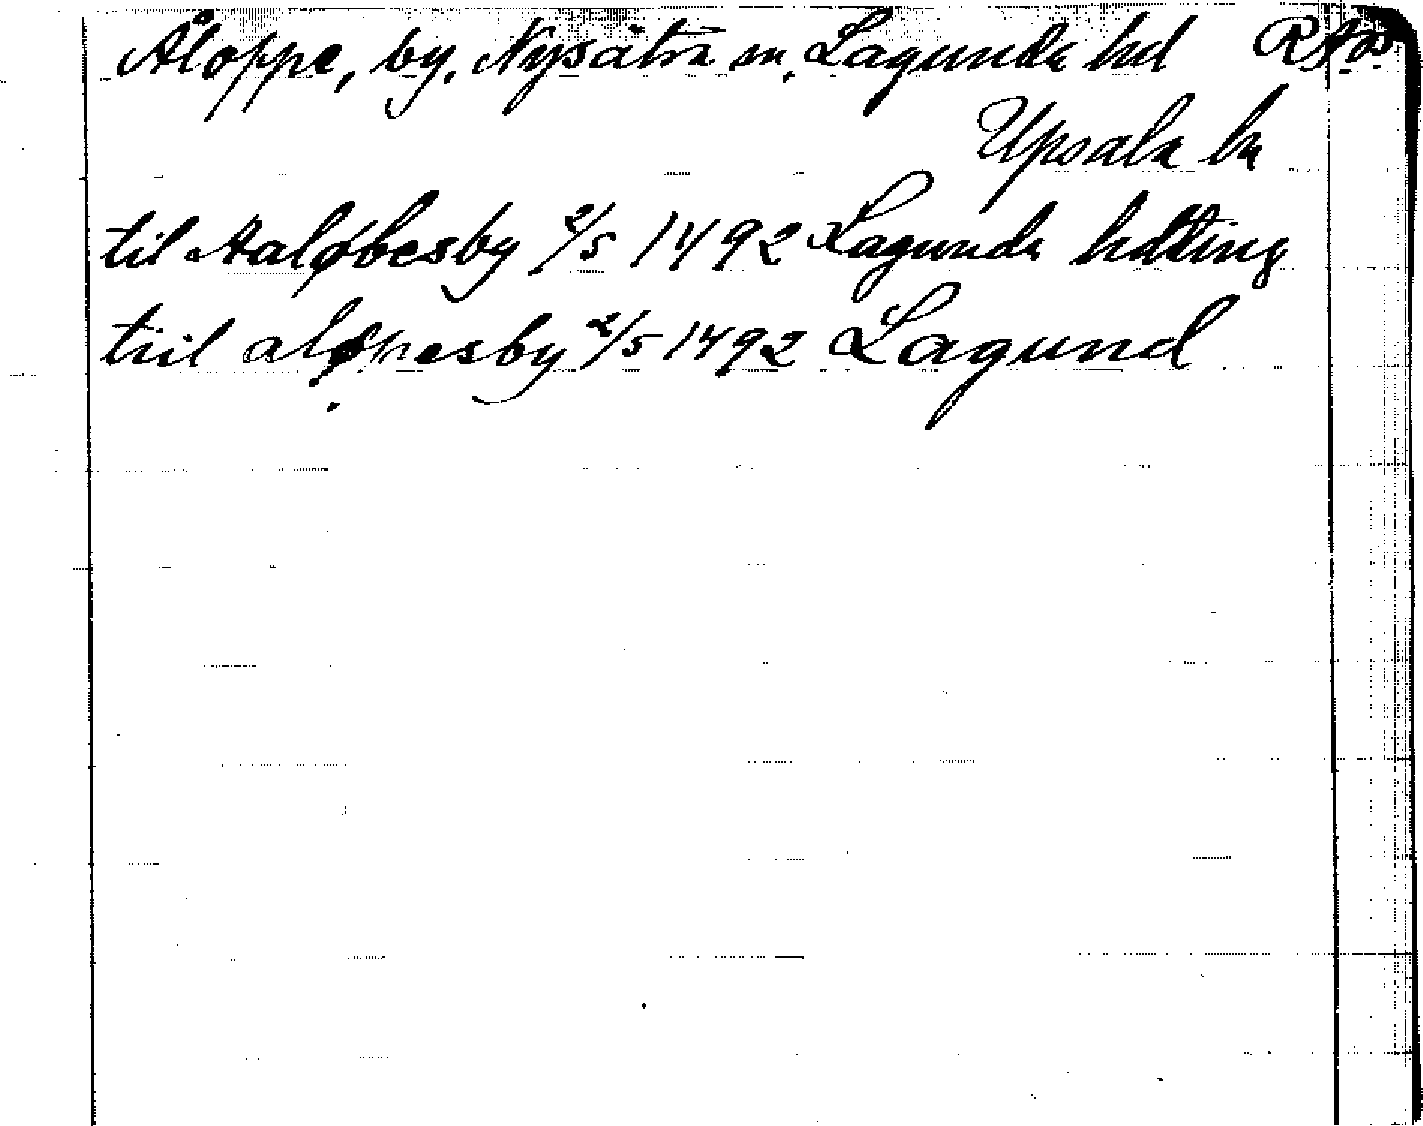 Åloppe, by, Nysätra sn, Lagunda hd
Upsala ln
til Aaløbesby 2/5 1492 Lagunda hdting
tiil aløpesby 2/5 1492 Lagund